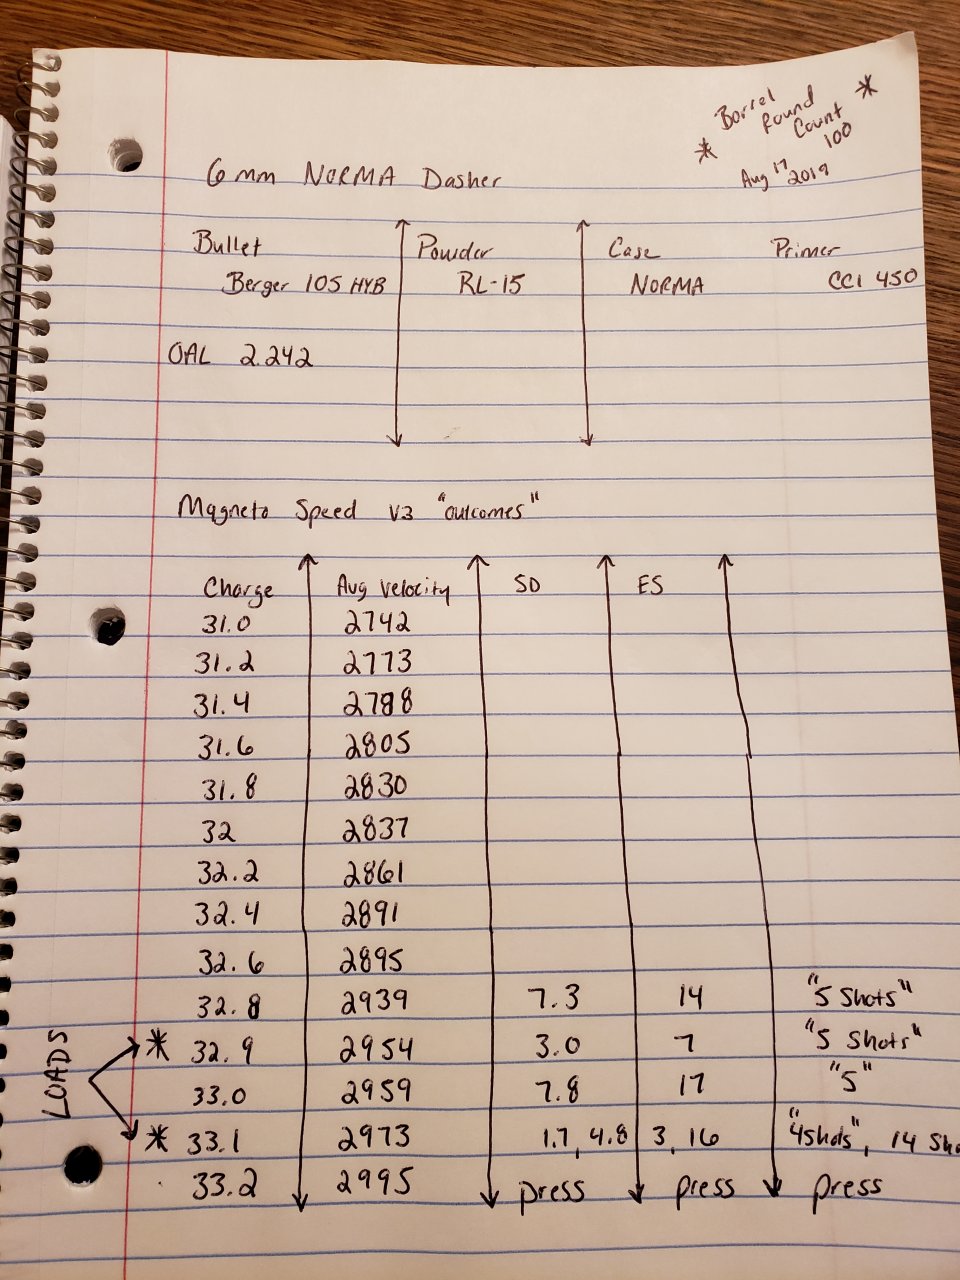 * Barrel Round Count 100 *
Aug 17 2019
6mm NORMA Dasher
Bullet Powder Case Primer
Berger 105 HYB RL-15 NORMA CCI 450
OAL 2.242
Magneto Speed V3 "outcomes"
Charge Avg Velocity SD ES
31.0 2742
31.2 2773
31.4 2788
31.6 2805
31.8 2830
32 2837
32.2 2861
32.4 2891
32.6 2895
32.8 2939 7.3 14 "5 Shots"
LOADS
* 32.9 2954 3.0 7 "5 Shots"
33.0 2959 7.8 17 "5"
* 33.1 2973 1.7, 4.8 3, 16 "4shots", 14 Sho
33.2 2995 press press press